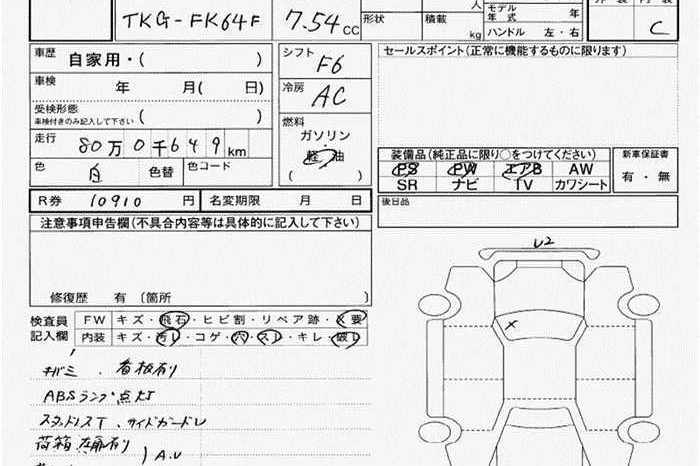 TKG-FK64F 7.54 CC
形状 積載 kg
人
モデル年式 年
ハンドル 左・右
C
車歴 自家用・( )
シフト F6
セールスポイント(正常に機能するものに限ります)
車検 年 月( 日)
冷房 AC
受検形態
車検付きのみ記入して下さい ( )
燃料
ガソリン・
軽油
( )
走行 80万0千649km
色 白 色替 色コード
装備品(純正品に限り○をつけてください)
PS PW エアB AW
SR ナビ TV カワシート
新車保証書
有・無
R券 10910 円 名変期限 月 日
後日品
注意事項申告欄(不具合内容等は具体的に記入して下さい)
修復歴 有 〔箇所 〕
検査員記入欄
FW キズ・飛石・ヒビ割・リペア跡・X要
内装 キズ・汚レ・コゲ・穴・スレ・キレ・破レ
U2
X
看板有り
ABSランプ点灯
スタッドレスT、サイドガードレ
荷箱
A.U